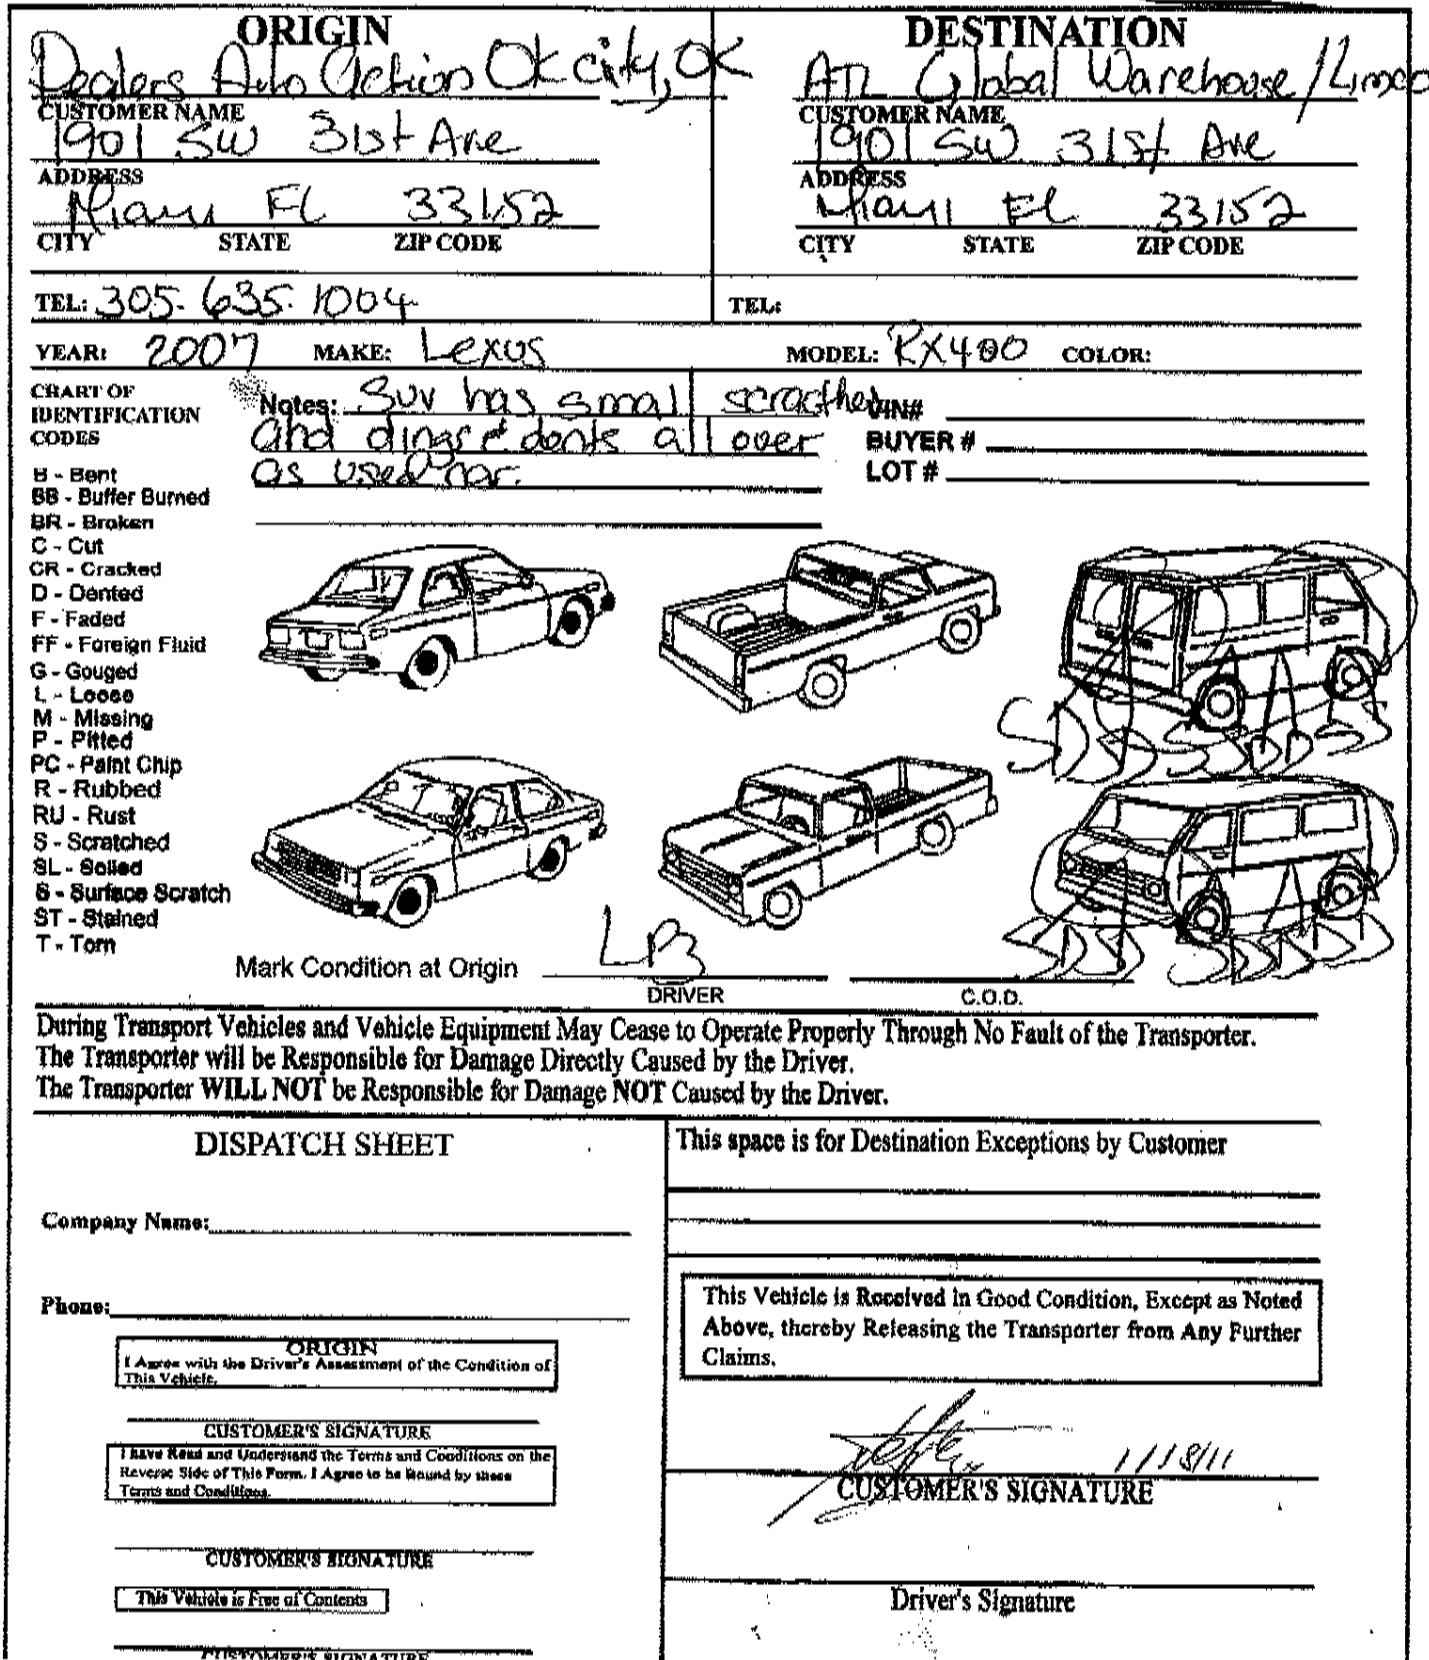 ORIGIN
DESTINATION
Dealers Auto Action Ok city, OK
ATL Global Warehouse /
CUSTOMER NAME
CUSTOMER NAME
1901 SW 31st Ave
1901 SW 31st Ave
ADDRESS
ADDRESS
Miami FL 33152
Miami FL 33152
CITY STATE ZIP CODE
CITY STATE ZIP CODE
TEL: 305-635-1004
TEL:
YEAR: 2007 MAKE: Lexus MODEL: RX400 COLOR:
CHART OF
IDENTIFICATION
CODES
B - Bent
BB - Buffer Burned
BR - Broken
C - Cut
CR - Cracked
D - Dented
F - Faded
FF - Foreign Fluid
G - Gouged
L - Loose
M - Missing
P - Pitted
PC - Paint Chip
R - Rubbed
RU - Rust
S - Scratched
SL - Soiled
S - Surface Scratch
ST - Stained
T - Torn
Notes: Suv has small scracthes
and dings & dents all over
as used car.
VIN#
BUYER #
LOT #
Mark Condition at Origin
LB
DRIVER
C.O.D.
During Transport Vehicles and Vehicle Equipment May Cease to Operate Properly Through No Fault of the Transporter.
The Transporter will be Responsible for Damage Directly Caused by the Driver.
The Transporter WILL NOT be Responsible for Damage NOT Caused by the Driver.
DISPATCH SHEET
Company Name:
Phone:
ORIGIN
I Agree with the Driver's Assessment of the Condition of
This Vehicle.
CUSTOMER'S SIGNATURE
I have Read and Understand the Terms and Conditions on the
Reverse Side of This Form. I Agree to be Bound by these
Terms and Conditions.
CUSTOMER'S SIGNATURE
This Vehicle is Free of Contents
CUSTOMER'S SIGNATURE
This space is for Destination Exceptions by Customer
This Vehicle is Received in Good Condition, Except as Noted
Above, thereby Releasing the Transporter from Any Further
Claims.
1/18/11
CUSTOMER'S SIGNATURE
Driver's Signature